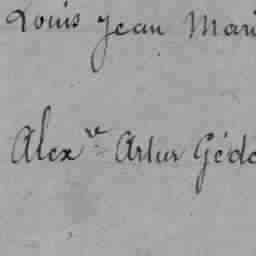 Louis Jean Mari
Alex^re Artur Gédé